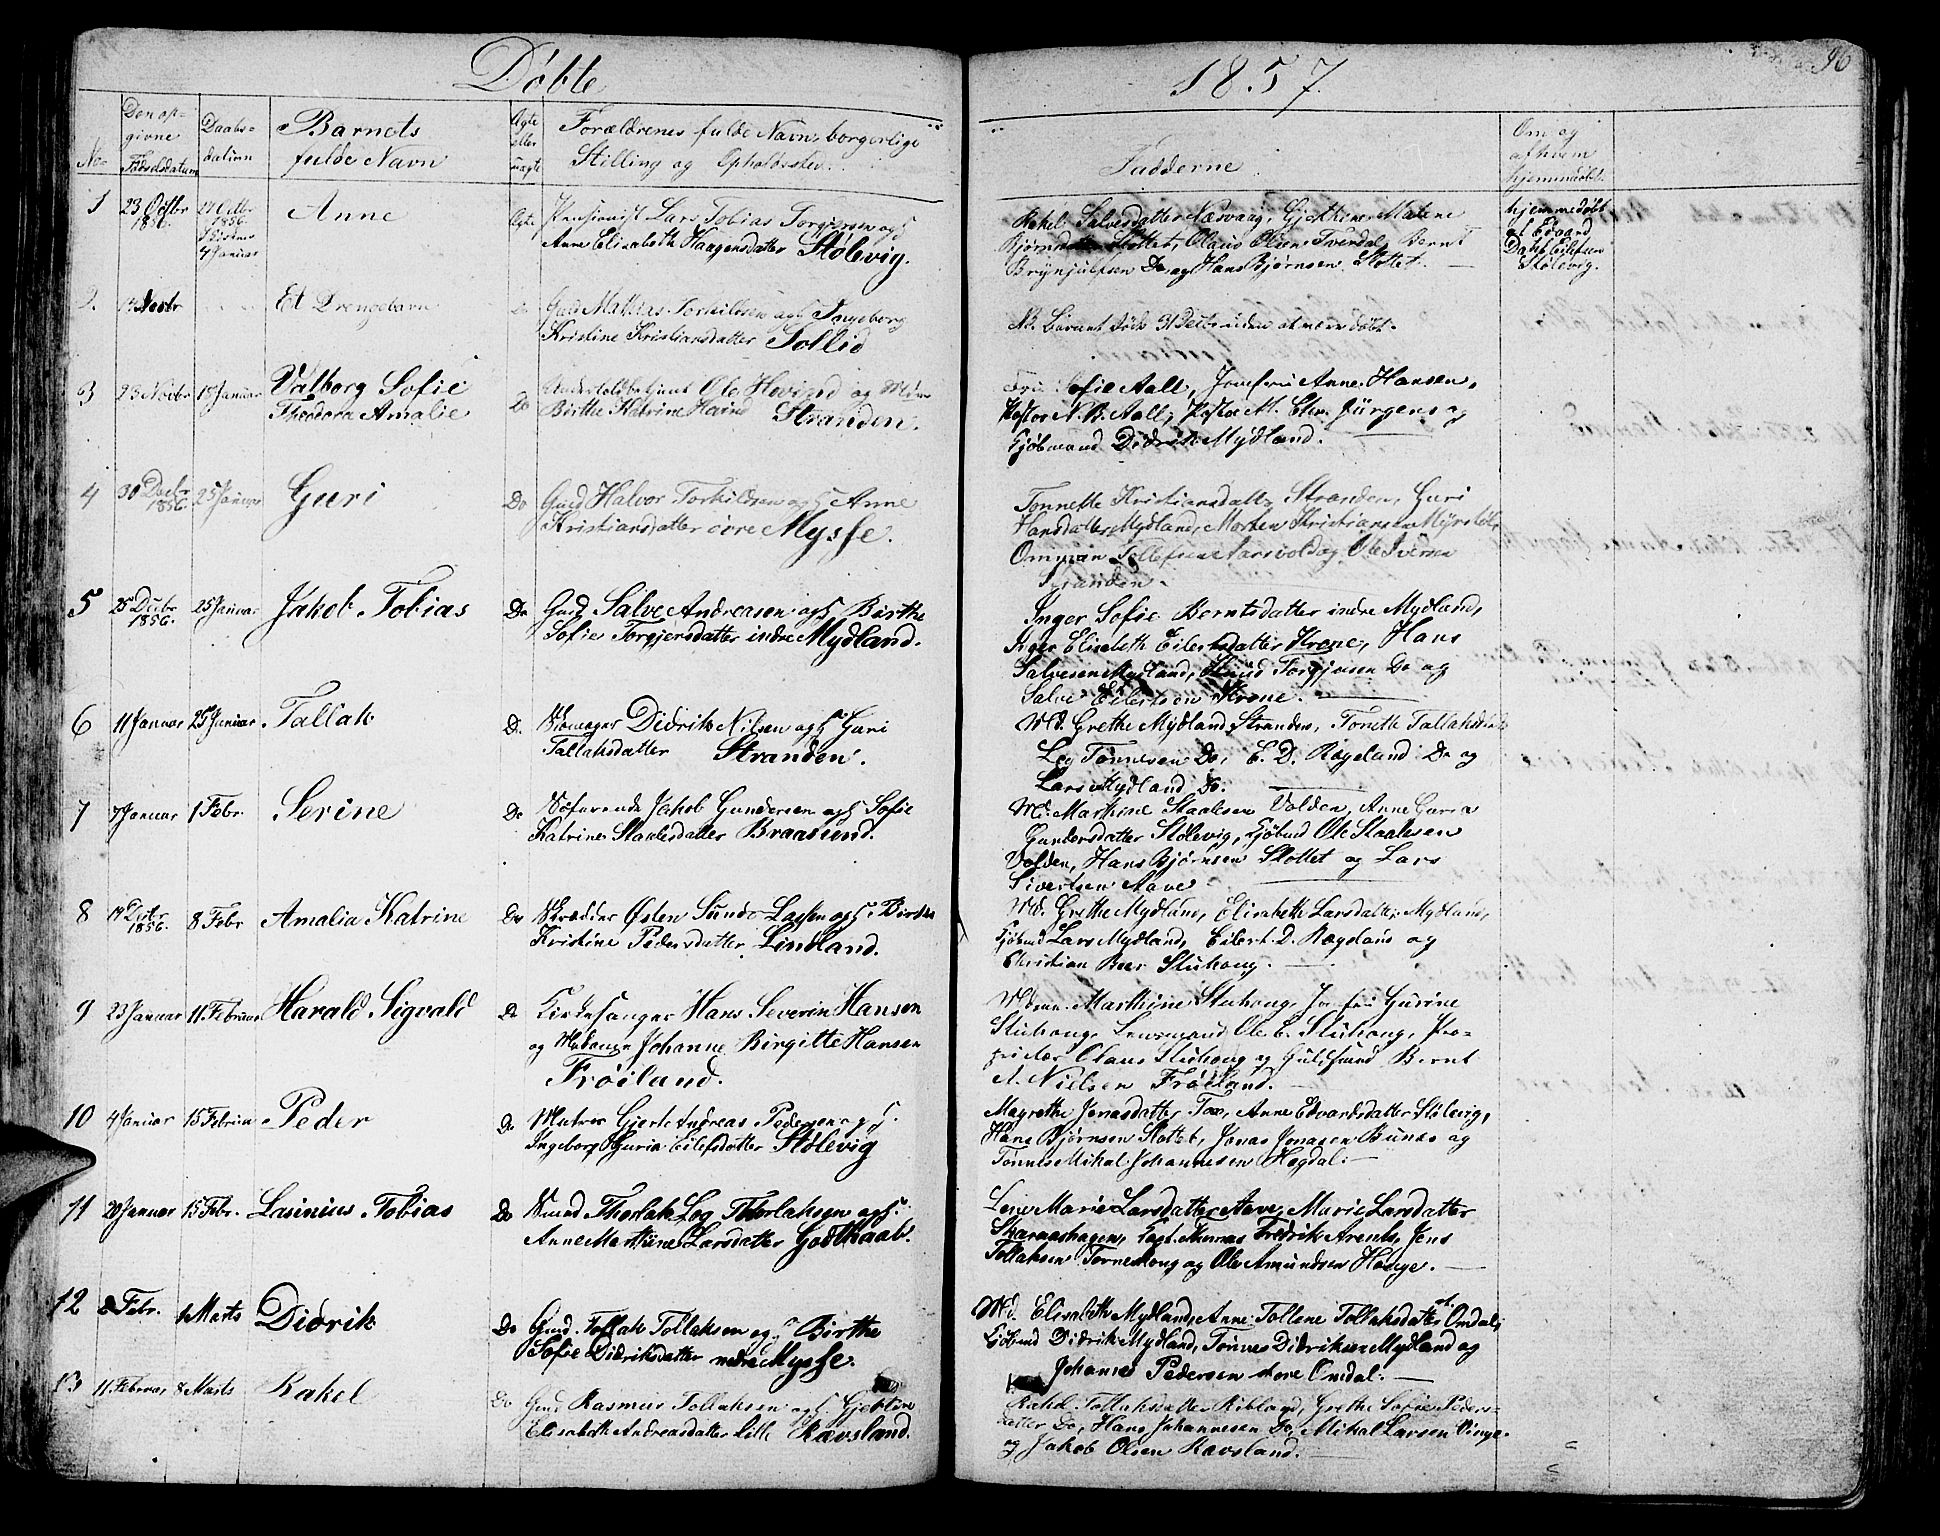 Døbte
1857.
96
No
Den op-
givne
Fødselsdatum
Daabs-
datum
Barnets
fulde Navn
Ægte
eller
uægte
Forældrenes fulde Navn, borgerlige
Stilling og Opholdssted.
Fadderne
Om og
af hvem
hjemmedøbt.
1
23 Octbr
1856.
27 Octbr
1856.
4 Januar
Anne
Ægte
Pensionist Lars Tobias Torgersen og
Anne Elisabeth Haagensdatter Stølevig.
Rakel Salvesdatter Næsvaag, Gjertine Malene
Bjørnsdatter Slottet, Olaus Olsen Tverdal, Bernt
Brynjulfsen Do og Hans Bjørnsen Slottet.
hjemmedøbt
af Edvard
Eilefsen
Stølevig.
2.
14 Decbr
Et Drengebarn
Do
Gmd Mathias Torkildsen og H Ingeborg
Kristine Kristiansdatter Sollid
NB. Barnet døde 31 Decbr uden at være døbt.
3
23 Novbr
18 Januar
Valborg Sofie
Theodora Amalie
Do
Undertoldbetjent Ole Hovind og
Birthe Katrine Stranden.
Sofie Aall, Jomfru Anne Hansen,
Pastor N. B. Aall, Pastor M. Chr. Jürgens og
Kjøbmand Didrik Mydland.
4
30 Decbr
1856.
25 Januar
Guri
Do
Gmd Halvor Torkildsen og H Anne
Kristiansdatter övre Mysse.
Tonnette Kristiansdatter Stranden, Guri
Hansdatter Mydland, Morten Kristiansen Myrstøl,
Ommun Tollefsen Aarsvold og Ole Iversen
Stranden.
5
25 Decbr
1856.
25 Januar
Jakob Tobias
Do
Gmd Salve Andreasen og H Birthe
Sofie Torgjersdatter indre Mydland.
Inger Sofie Berntsdatter indre Mydland,
Inger Elisabeth Eilertsdatter Krone, Hans
Salvesen Mydland, Knud Torgjersen Do og
Salve Eilertsen Krone.
6
11 Januar
25 Januar
Tallak
Do
Skomager Didrik Nilsen og H Guri
Tallaksdatter Stranden.
Md. Grethe Mydland Stranden, Tonette Tallaksdatter
Leg Tønnesen Do, E. D. Rægeland Do og
Lars Mydland Do.
7
7 Januar
1 Febr.
Serine
Do
Søfarende Jakob Gundersen og H Sofie
Katrine Staalesdatter Braasund.
Md. Marthine Staalesen Volden, Anne Guria
Gundersdatter Stølevig, Kjøbmd Ole Staalesen
Volden, Hans Bjørnsen Slottet og Lars
Sivertsen Aave
8
14 Decbr
1856.
8 Febr
Amalia Katrine
Do
Skrædder Østen Sundo Lassen og H. Birthe
Kristine Pedersdatter Lindland.
Md. Grethe Mydland, Elisabeth Larsdatter Mydland,
Kjøbmd Lars Mydland, Eilert D. Rægeland og
Christian Beer Stuhoug.
9
23 Januar
11 Februar
Harald Sigvald
Do
Kirkesanger Hans Severin Hansen
og Madamen Johanne Birgitte Hansen
Frøiland.
Mdmn. Marthine Stuhoug, Jomfru Gurine
Stuhoug, Lensmand Ole C. Stuhoug, Pro-
prietær Olaus Stuhoug og Guldsmed Bernt
A. Nielsen Frøiland.
10
4 Januar
15 Februar
Peder
Do
Matros Gjert Andreas Pedersen og H.
Ingeborg Guria Eilefsdatter Stølevig
Magrethe Jonasdatter Tox, Anne Edvardsdatter Stølevig,
Hans Bjørnsen Slottet, Jonas Jonasen Bunes og
Tønnes Mikal Johannesen Hogdal.
11
20 Januar
15 Febr.
Lasinius Tobias
Do
Smed Thorlak Leg Thorlaksen og H.
Anne Martine Larsdatter Godthaab.
Lene Marie Larsdatter Aave, Marie Larsdatter
Skarnshagen, Fredrik Arents, Jens
Tollaksen Torneshoug og Ole Amundsen Houge.
12
2 Febr.
1 Marts
Didrik
Do
Gmd. Tollak Tollaksen og H Birthe
Sofie Didriksdatter nedre Mysse.
Md. Elisabeth Mydland, Anne Tollene Tollaksdatter st. Omdal,
Kjøbmd Didrik Mydland, Tønnes Didriksen Mydland og
Johannes Pedersen store Omdal.
13
11 Februar
8 Marts
Rakel
Do
Gmd Rasmus Tollaksen og H. Gjertine
Elisabeth Andreasdatter lille Ravsland.
Rakel Tollaksdatter Ribland, Grethe Sofie Peders-
datter Do, Hans Johannesen Do, Mikal Larsen Vinge
og Jakob Olsen Ravsland.